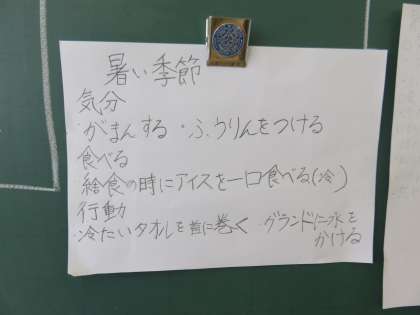 暑い季節
気分
・がまんする ・ふうりんをつける
食べる
・給食の時にアイスを一口食べる(冷)
行動
・冷たいタオルを首に巻く ・グランドに水を
かける